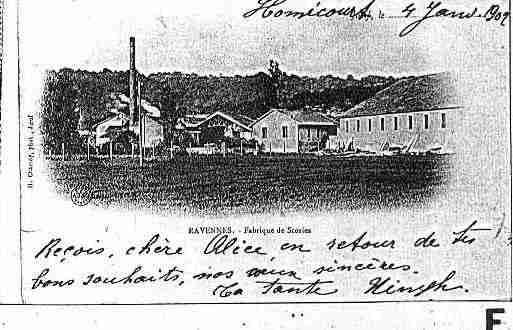 Homécourt, le 4 Janv. 1902
RAVENNES. - Fabrique de Scories
Reçois, chère Alice, en retour de tes
bons souhaits, nos vœux sincères.
Ta tante
E